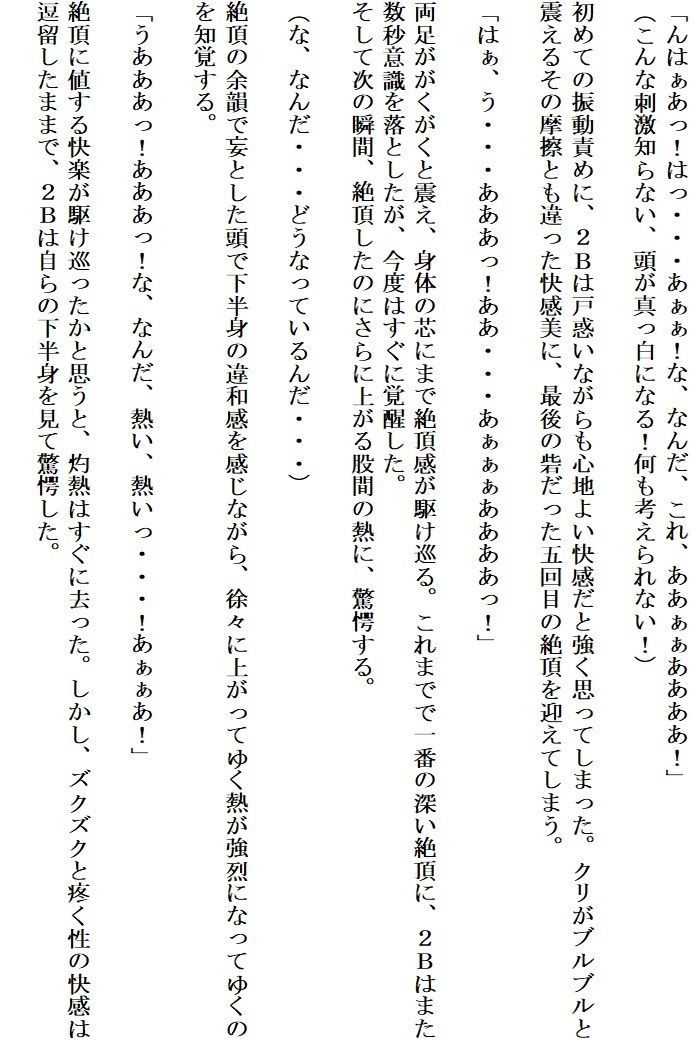 「んはぁあっ！はっ・・・あぁぁ！な、なんだ、これ、ああぁぁああああ！」
（こんな刺激知らない、頭が真っ白になる！何も考えられない！）
初めての振動責めに、２Ｂは戸惑いながらも心地よい快感だと強く思ってしまった。クリがブルブルと
震えるその摩擦とも違った快感美に、最後の砦だった五回目の絶頂を迎えてしまう。
「はぁ、う・・・あああっ！ああ・・・あぁぁぁああああっ！」
両足ががくがくと震え、身体の芯にまで絶頂感が駆け巡る。これまでで一番の深い絶頂に、２Ｂはまた
数秒意識を落としたが、今度はすぐに覚醒した。
そして次の瞬間、絶頂したのにさらに上がる股間の熱に、驚愕する。
（な、なんだ・・・どうなっているんだ・・・）
絶頂の余韻で妄とした頭で下半身の違和感を感じながら、徐々に上がってゆく熱が強烈になってゆくの
を知覚する。
「うあああっ！あああっ！な、なんだ、熱い、熱いっ・・・！あぁぁあ！」
絶頂に値する快楽が駆け巡ったかと思うと、灼熱はすぐに去った。しかし、ズクズクと疼く性の快感は
逗留したままで、２Ｂは自らの下半身を見て驚愕した。